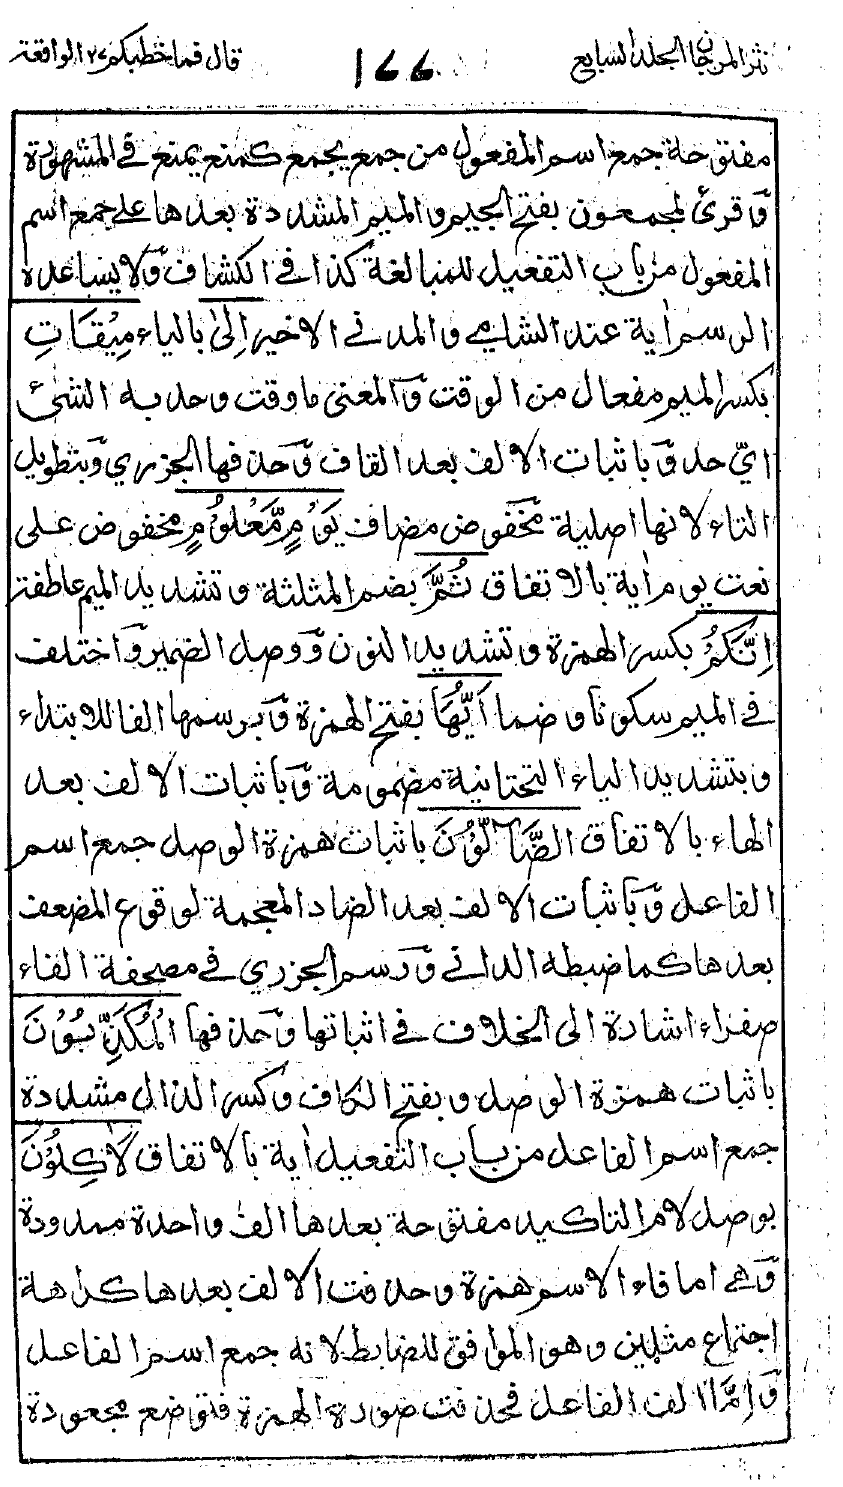 نثر المرجان المجلد السابع
١٦٦
قال فما خطبكم ٢٧ الواقعة
مفتوحة جمع اسم المفعول من جمع يجمع كمنع يمنع في المشهورة
وقرئ لمجمعون بفتح الجيم والميم المشددة بعدها على جمع اسم
المفعول من باب التفعيل للمبالغة كذا في الكشاف ولا يساعده
الرسم اٰية عند الشامي والمدني الاخير اِلىٰ بالياء مِيْقَاتِ
بكسر الميم مفعال من الوقت والمعنى ما وقت وحد به الشئ
اي حد وباثبات الالف بعد القاف وحذفها الجزري وبتطويل
التاء لانها اصلية مخفوض مضاف يَوْمٍ مَّعْلُوْمٍ مخفوض على
نعت يوم اٰية بالاتفاق ثُمَّ بضم المثلثة وتشديد الميم عاطفة
اِنَّكُمْ بكسر الهمزة وتشديد النون ووصل الضمير واختلف
في الميم سكونا وضما اَيُّهَا بفتح الهمزة وبرسمها الفا للابتداء
وبتشديد الياء التحتانية مضمومة وباثبات الالف بعد
الهاء بالاتفاق الضَّآلُّوْنَ باثبات همزة الوصل جمع اسم
الفاعل وباثبات الالف بعد الضاد المعجمة لوقوع المضعف
بعدها كما ضبطه الداني ورسم الجزري في مصحفة الفاء
صفراء اشارة الى الخلاف في اثباتها وحذفها الْمُكَذِّبُوْنَ
باثبات همزة الوصل وبفتح الكاف وكسر الذال مشددة
جمع اسم الفاعل من باب التفعيل اٰية بالاتفاق لَاٰكِلُوْنَ
بوصل لام التاكيد مفتوحة بعدها الف واحدة ممدودة
وهي اما فاء الاسم همزة وحذفت الالف بعدها كراهة
اجتماع مثلين وهو الموافق للضابط لانه جمع اسم الفاعل
وَاِمَّا الف الفاعل فحذفت صورة الهمزة فتوضع مجعودة